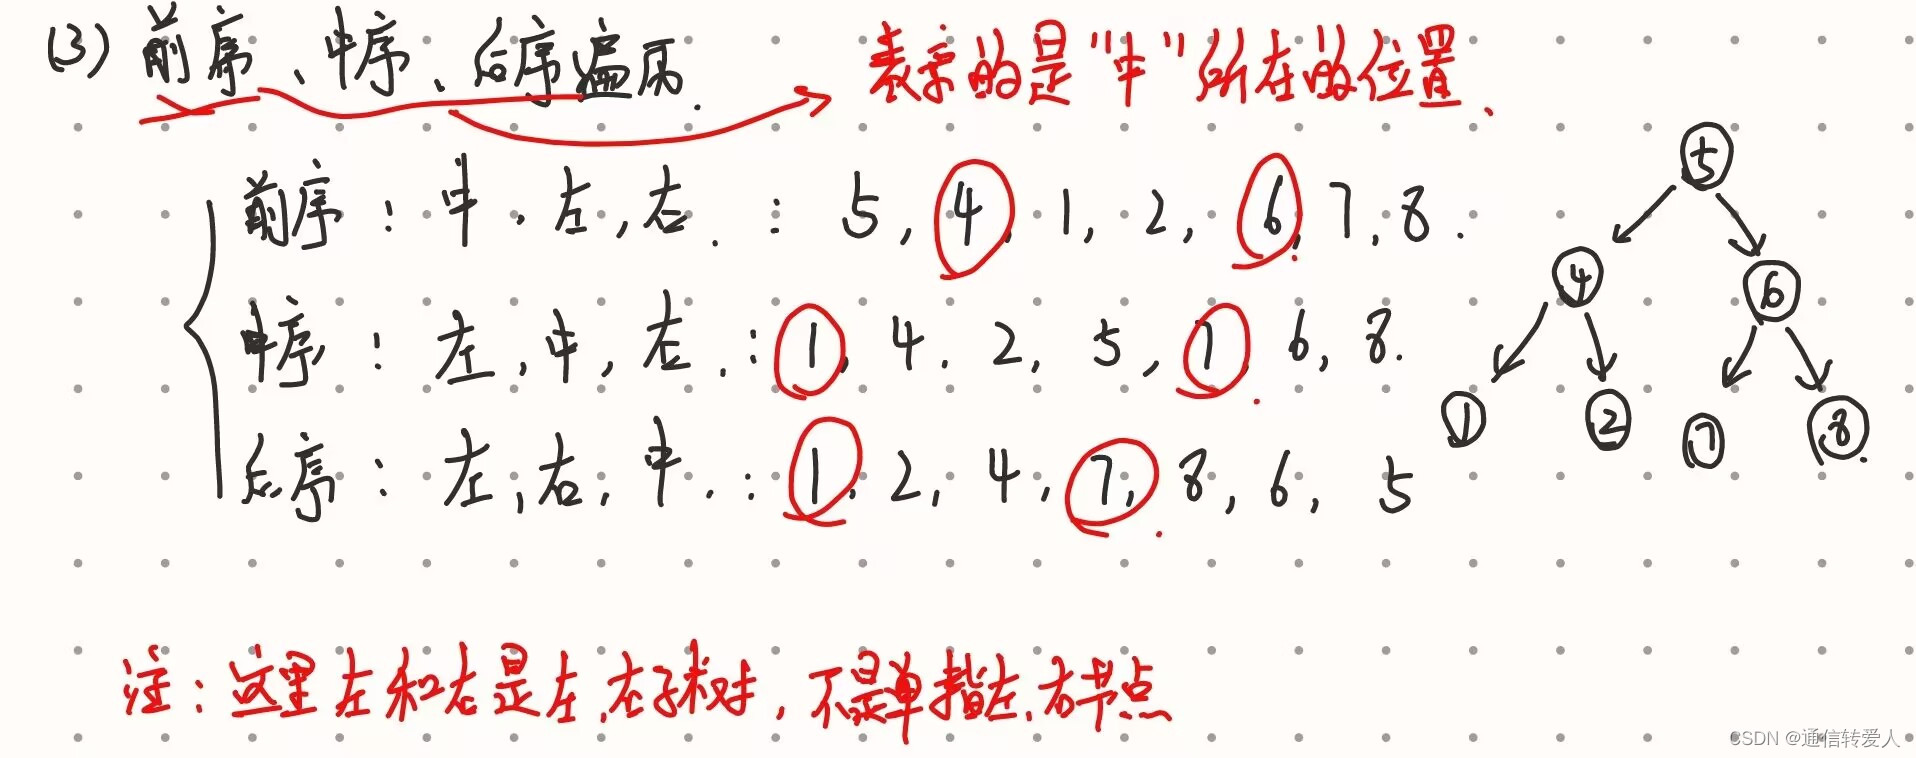 (3) 前序、中序、后序遍历. 表示的是"中"所在的位置.
前序:中,左,右.: 5, 4, 1, 2, 6, 7, 8.
中序:左,中,右.: 1, 4, 2, 5, 7, 6, 8.
后序:左,右,中.: 1, 2, 4, 7, 8, 6, 5
5
4 6
1 2 7 8
注:这里左和右是左,右子树,不是单指左,右节点
CSDN @通信转爱人